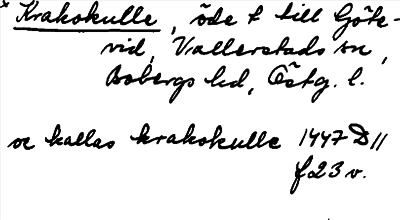 * Krakokulle, öde t till Göte-
vid, Vallerstads sn,
Bobergs hd, Östg. l.
sc kallas krakokulle 1447 D 11
f 23 v.